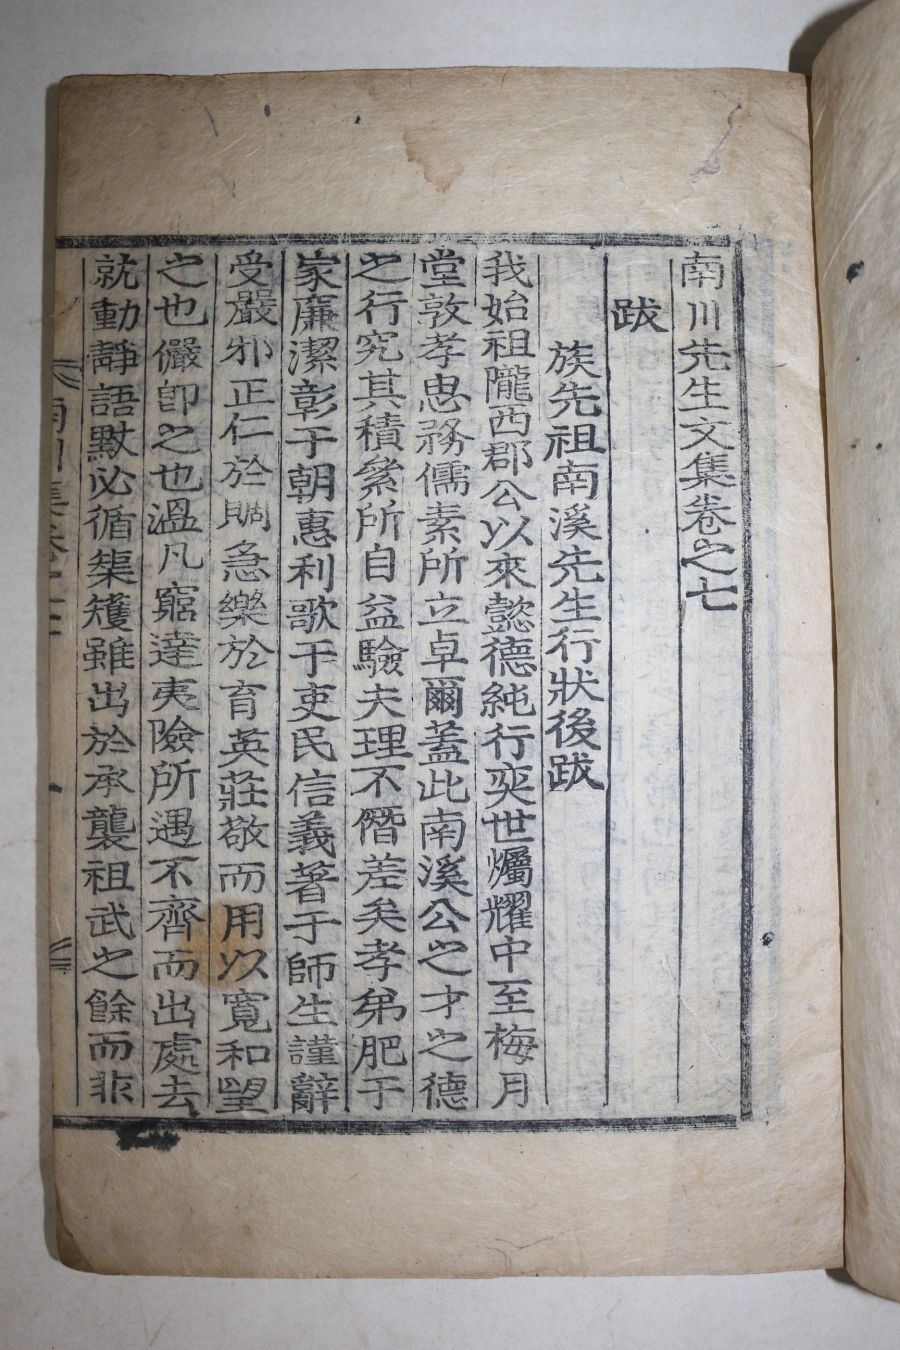 南川先生文集卷之七
跋
族先祖南溪先生行狀後跋
我始祖隴西郡公以來懿德純行奕世爥耀中至梅月
堂敦孝思務儒素所立卓爾蓋此南溪公之才之德
之行究其積絫所自益驗夫理不僭差矣孝弟肥于
家廉潔彰于朝惠利歌于吏民信義著于師生謹辭
受嚴邪正仁於賙急樂於育英莊敬而用以寬和望
之也儼卽之也溫凡窮達夷險所遇不齊而出處去
就動靜語默必循榘矱雖出於承襲祖武之餘而非